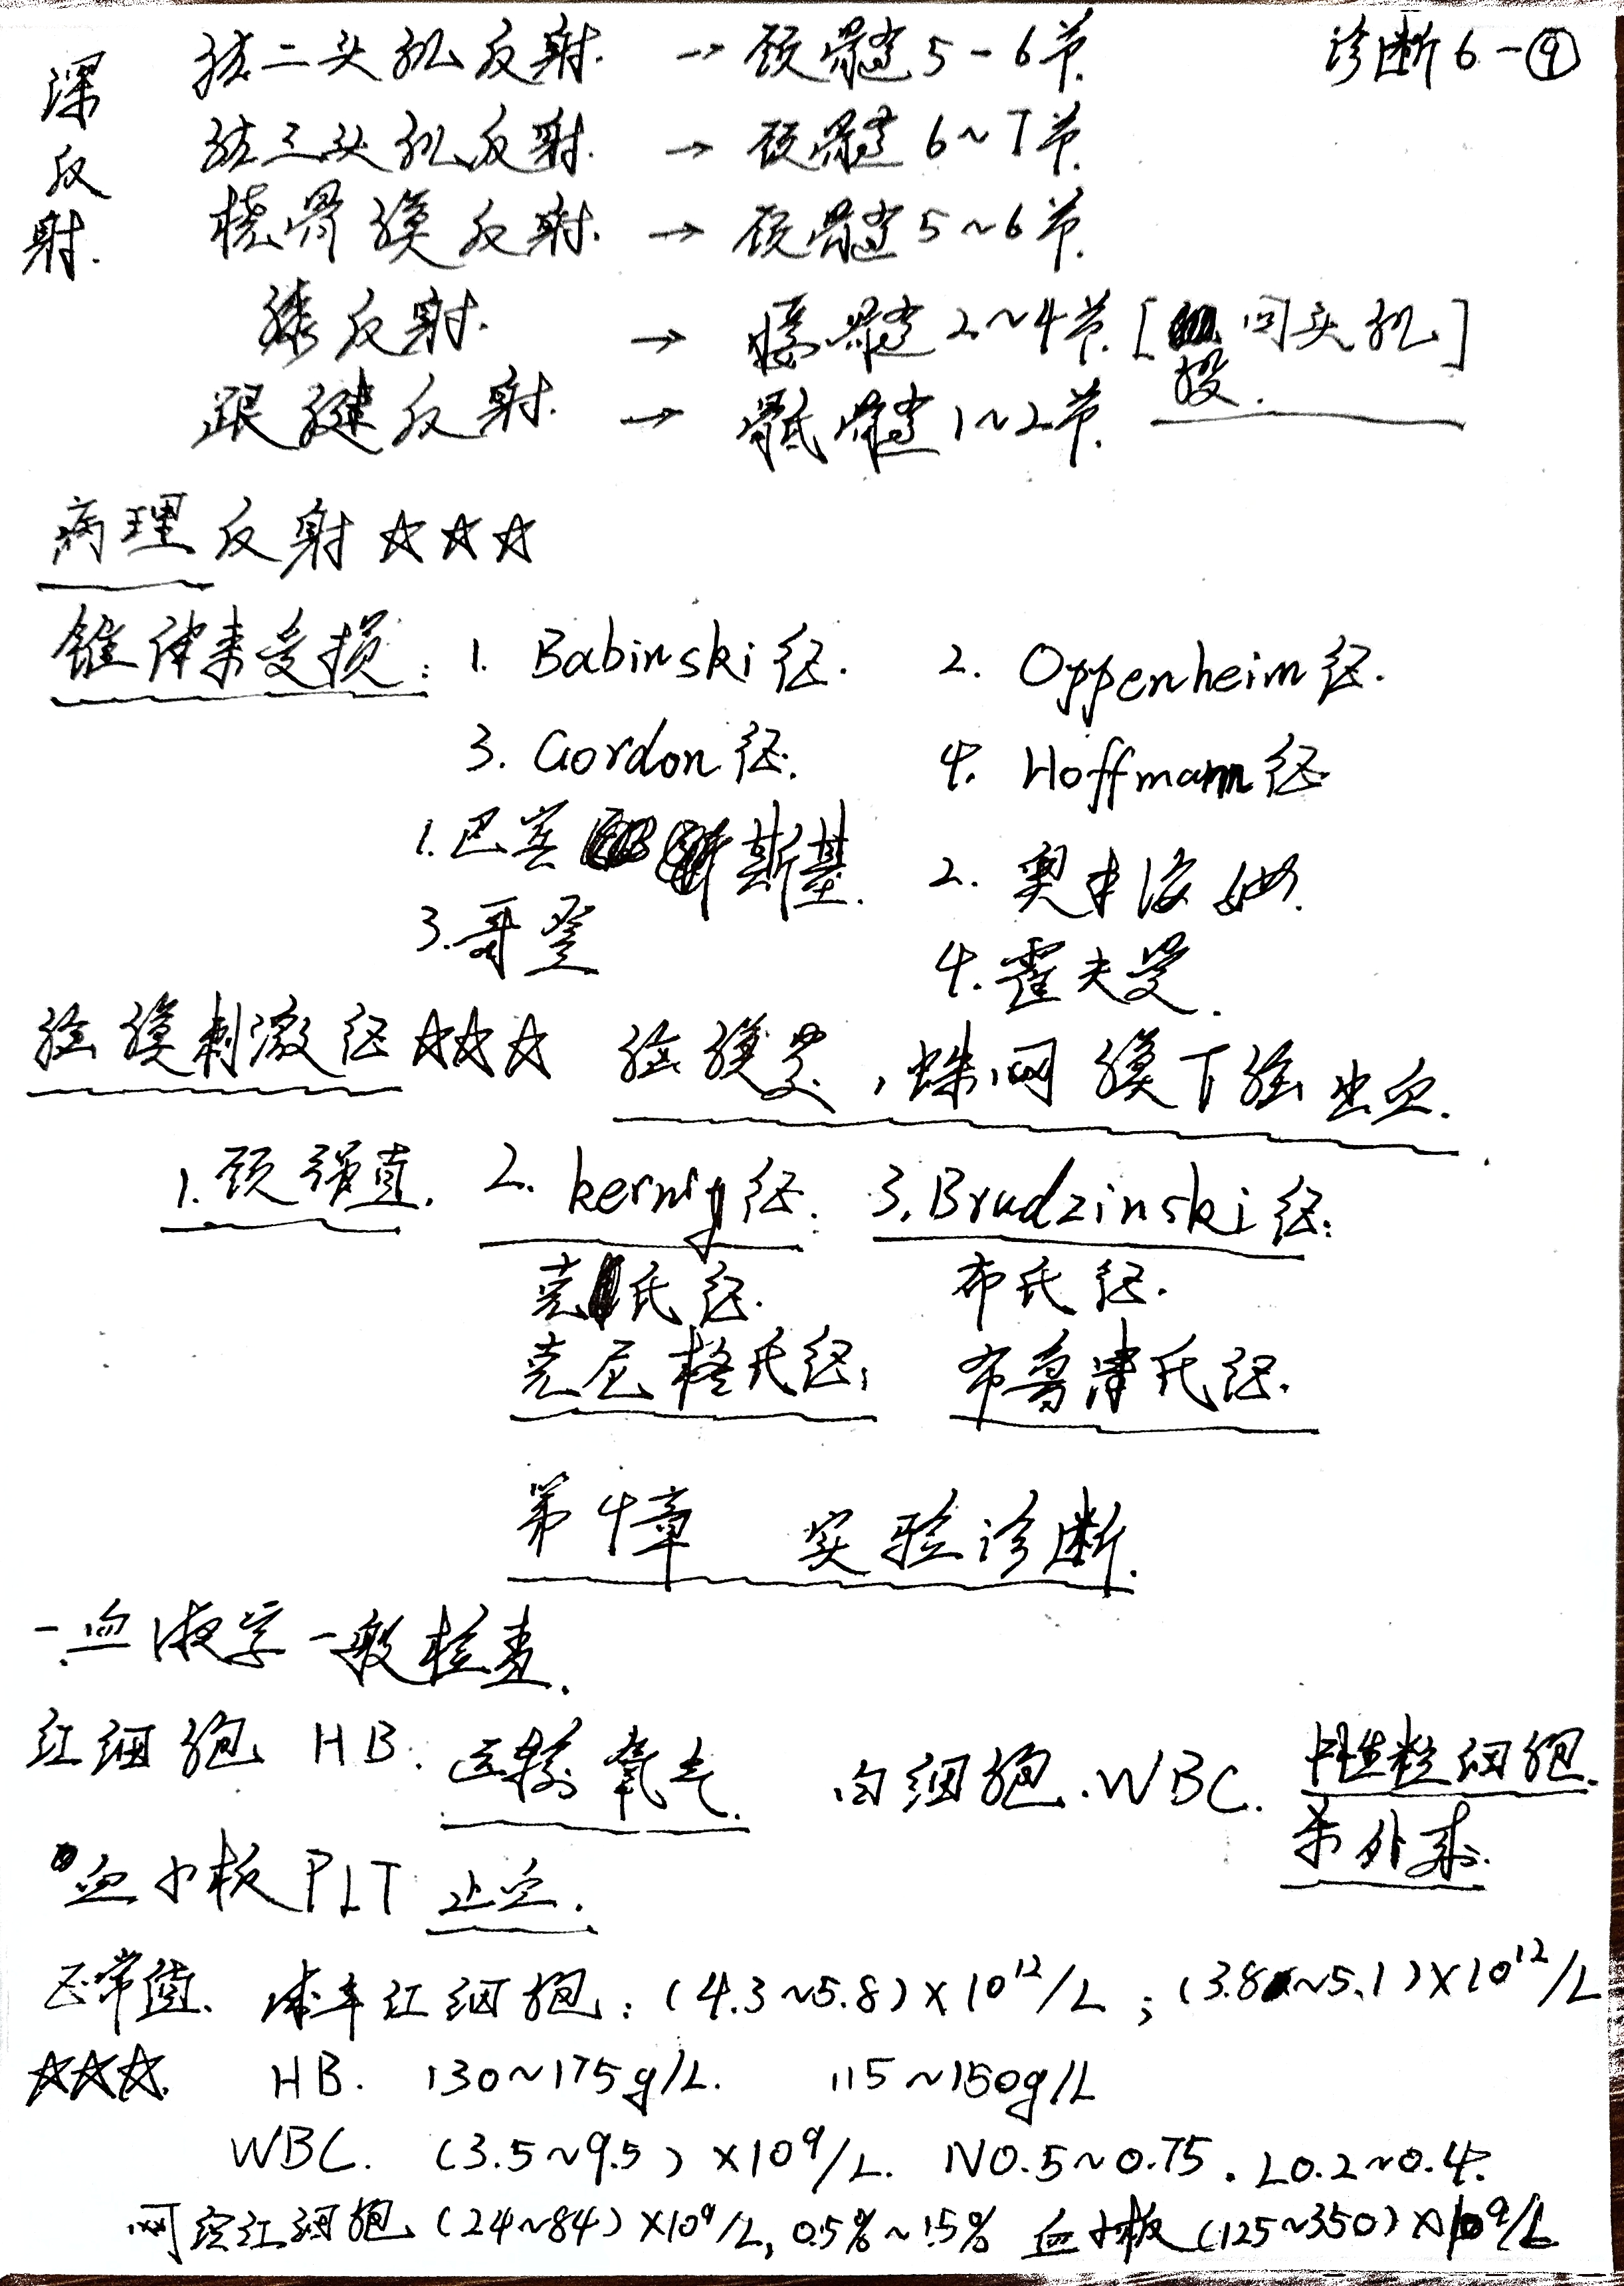 诊断6-④
深反射.
肱二头肌反射. → 颈髓5-6节.
肱三头肌反射. → 颈髓6~7节.
桡骨膜反射. → 颈髓5~6节.
膝反射. → 腰髓2~4节.[股四头肌]
跟腱反射. → 骶髓1~2节.
病理反射☆☆☆
锥体束受损: 1. Babinski征. 2. Oppenheim征.
3. Gordon征. 4. Hoffmann征.
1.巴宾斯基. 2. 奥本海姆.
3.哥登 4.霍夫曼.
脑膜刺激征☆☆☆ 脑膜炎,蛛网膜下腔出血.
1.颈强直. 2. kernig征. 3.Brudzinski征:
克氏征. 布氏征.
克尼格氏征; 布鲁津氏征.
第4章 实验诊断.
一.血液学一般检查.
红细胞 HB. 运输氧气. 白细胞.WBC. 中性粒细胞.
杀外来.
血小板PLT 止血.
正常值. 红细胞:(4.3~5.8)×10¹²/L;(3.8~5.1)×10¹²/L
☆☆☆. HB. 130~175g/L. 115~150g/L
WBC. (3.5~9.5)×10⁹/L. N0.5~0.75. L0.2~0.4.
网织红细胞(24~84)×10⁹/L, 0.5%~1.5% 血小板(125~350)×10⁹/L